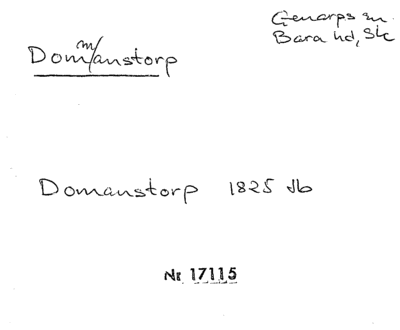 Genarps sn.
Bara hd, Sk
Domm/anstorp
Domanstorp 1825 Jb
Nr 17115